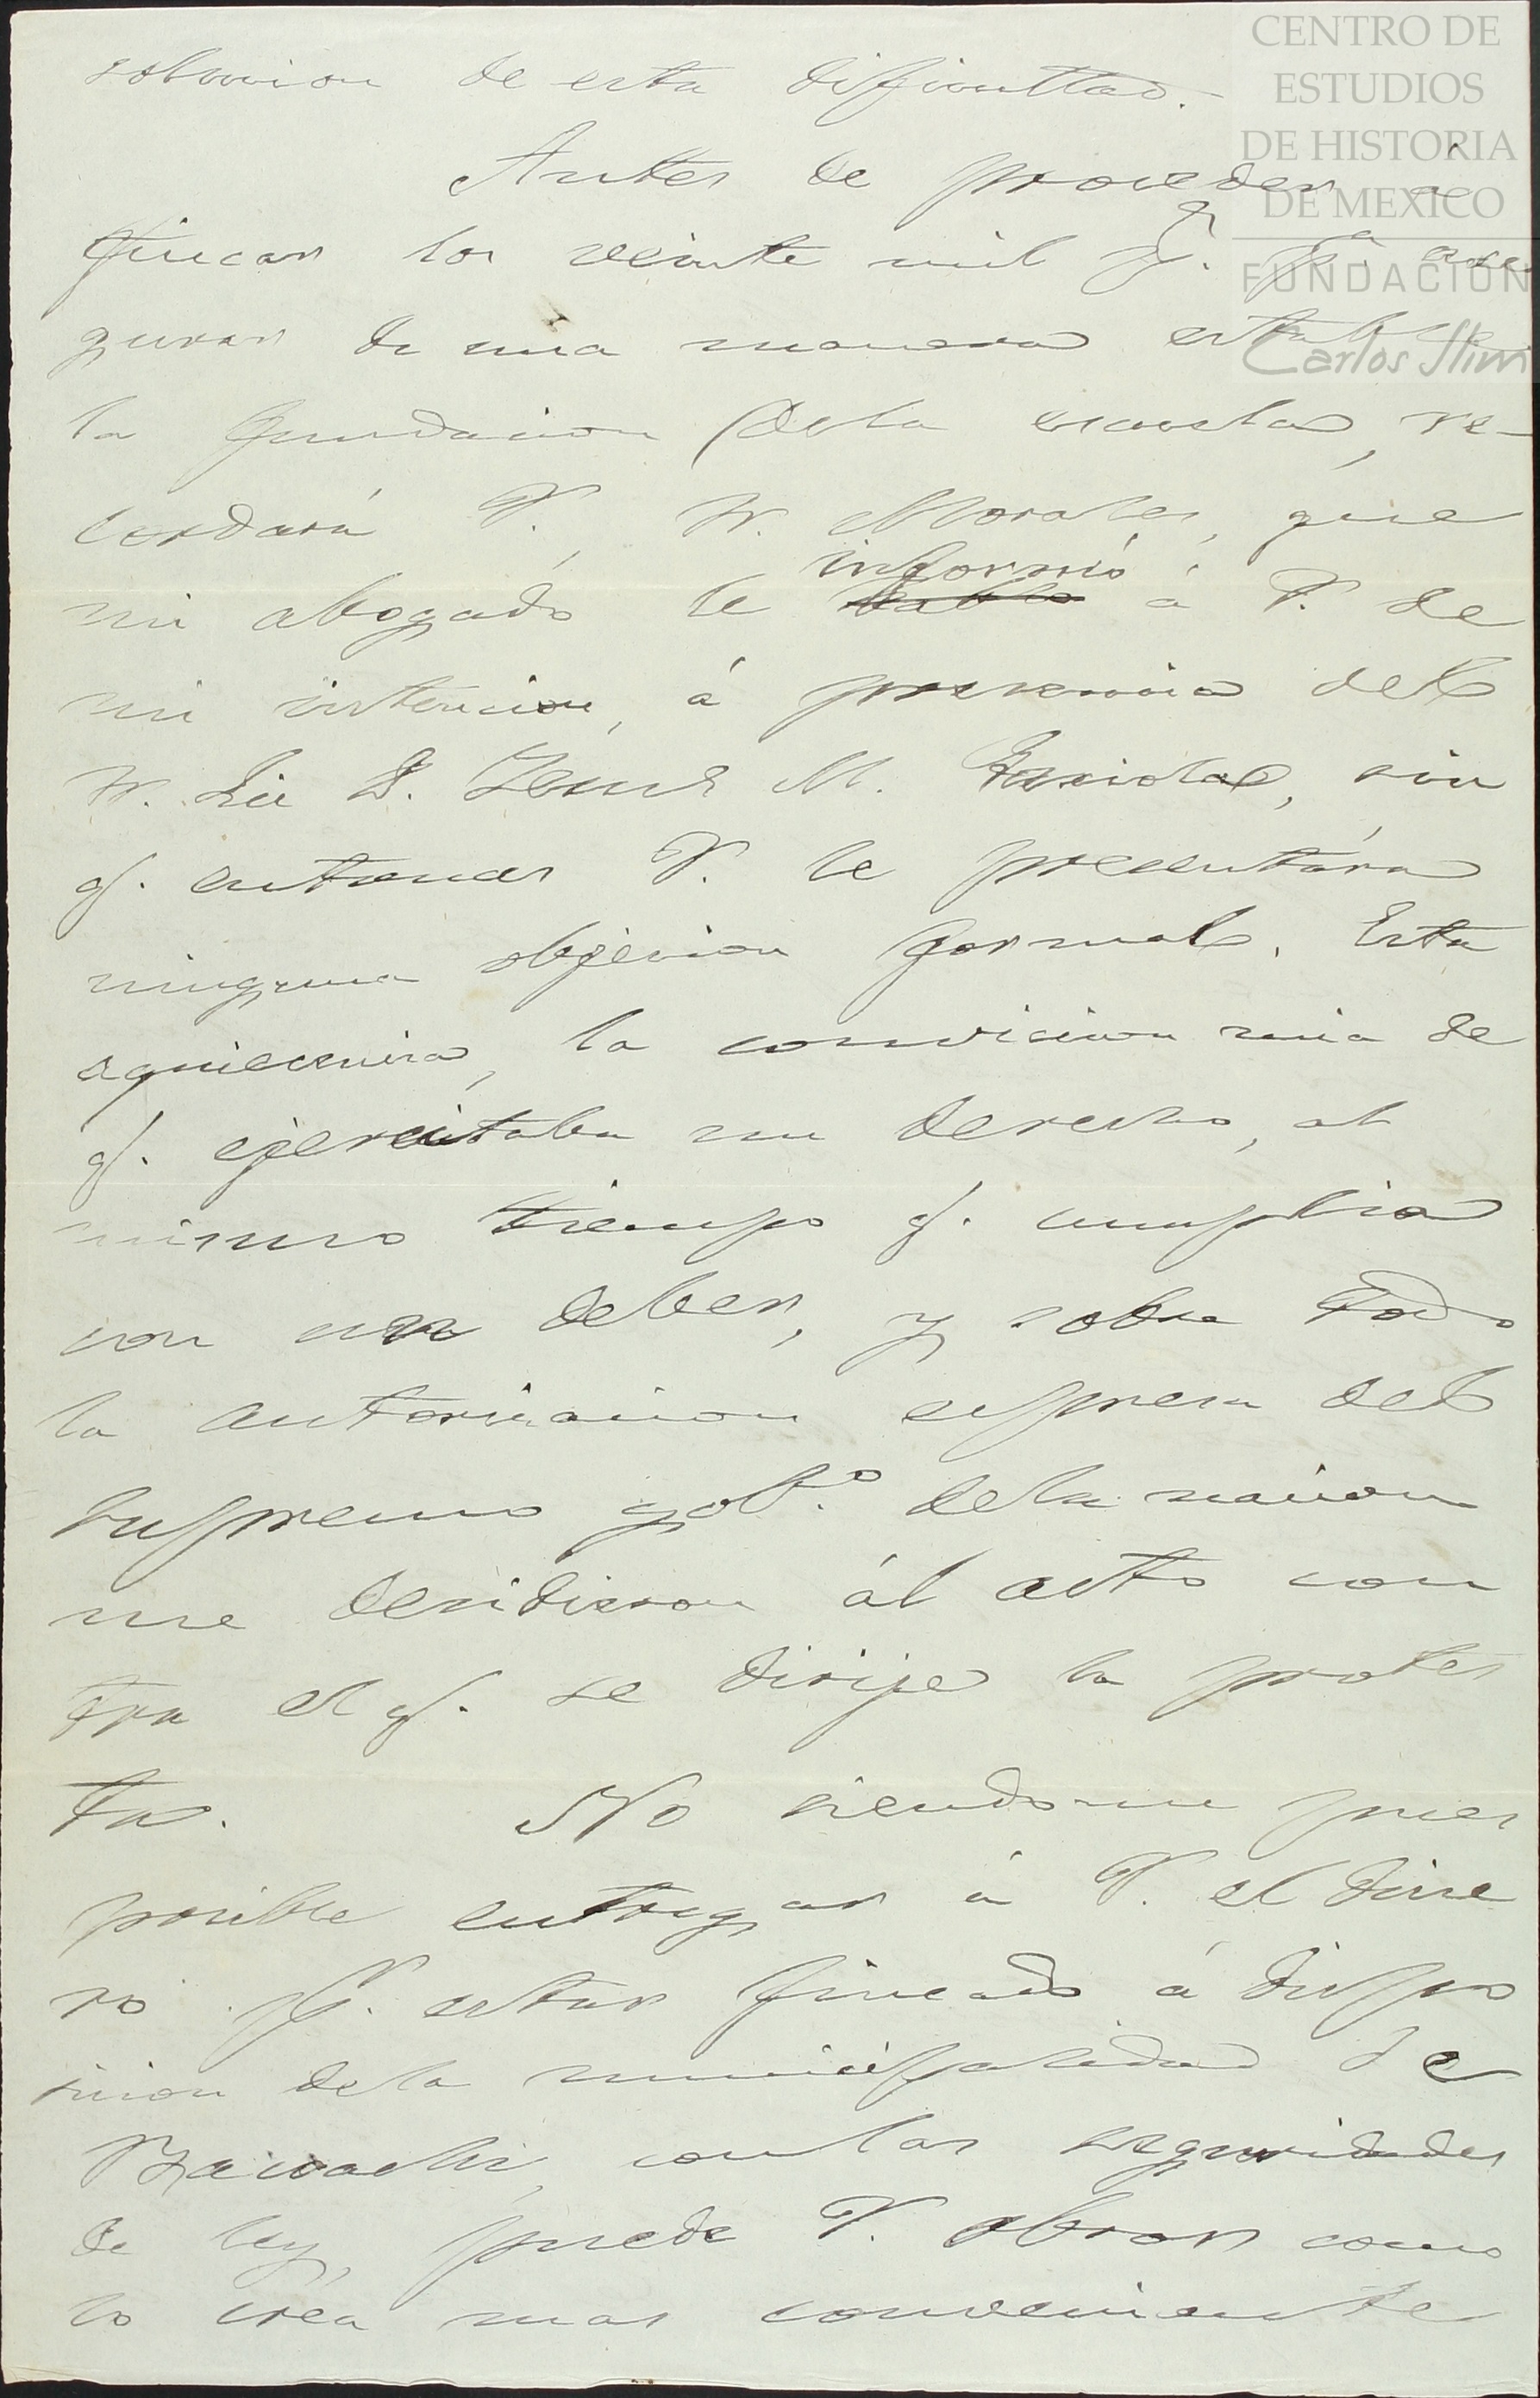 CENTRO DE
ESTUDIOS
DE HISTORIA
DE MEXICO
FUNDACIÓN
Carlos Slim
solucion de esta dificultad.-
Antes de proceder á
fincar los veinte mil p. pª ase
gurar de una manera estable
la fundacion de la escuela, re-
cordará V., Sr. Morales, que
informó
mi abogado le á V. de
mi intencion, á presencia del
Sr. Lic D. Jesus M. sin
q. entonces V. le presentára
ninguna objecion formal. Esta
aquiecencia, la conviccion mia de
q. ejercitaba un derecho, al
mismo tiempo q. cumplia
con un deber, y sobre todo
la autorizacion espresa del
Supremo gobº. dela nacion
me decidieron ál acto con
tra el q. se dirije la protes
ta. No siendome pues
posible entregar á V. el dine
ro pr. estar fincado á dispo
sicion dela municipalidad de
con las seguridades
de ley, puede V. obrar como
lo créa mas conveniente